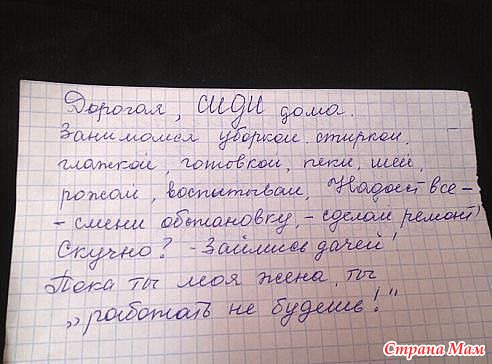 Дорогая, СИДИ дома.
Занимайся уборкой, стиркой,
глажкой, готовкой, пеки, шей,
рожай, воспитывай, Надоест все -
- смени обстановку, - сделай ремонт!
Скучно? - Займись дачей!
Пока ты моя жена, ты
„работать не будешь!"
Страна Мам